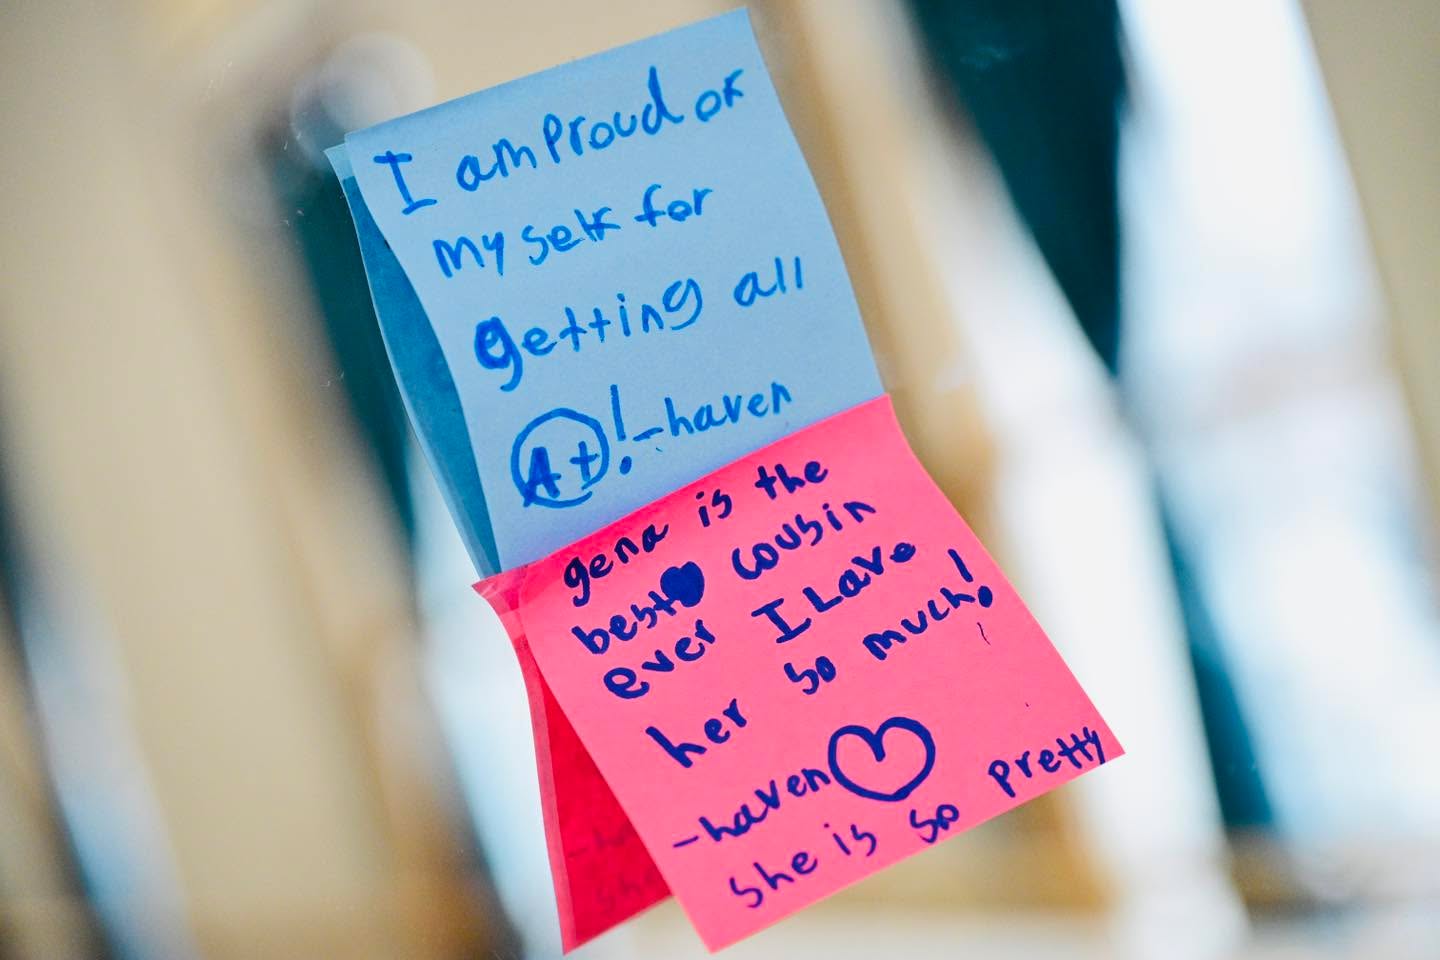 I am Proud of
my self for
getting all
A+! -haven
gena is the
best cousin
ever I Love
her so much!
-haven
she is so pretty